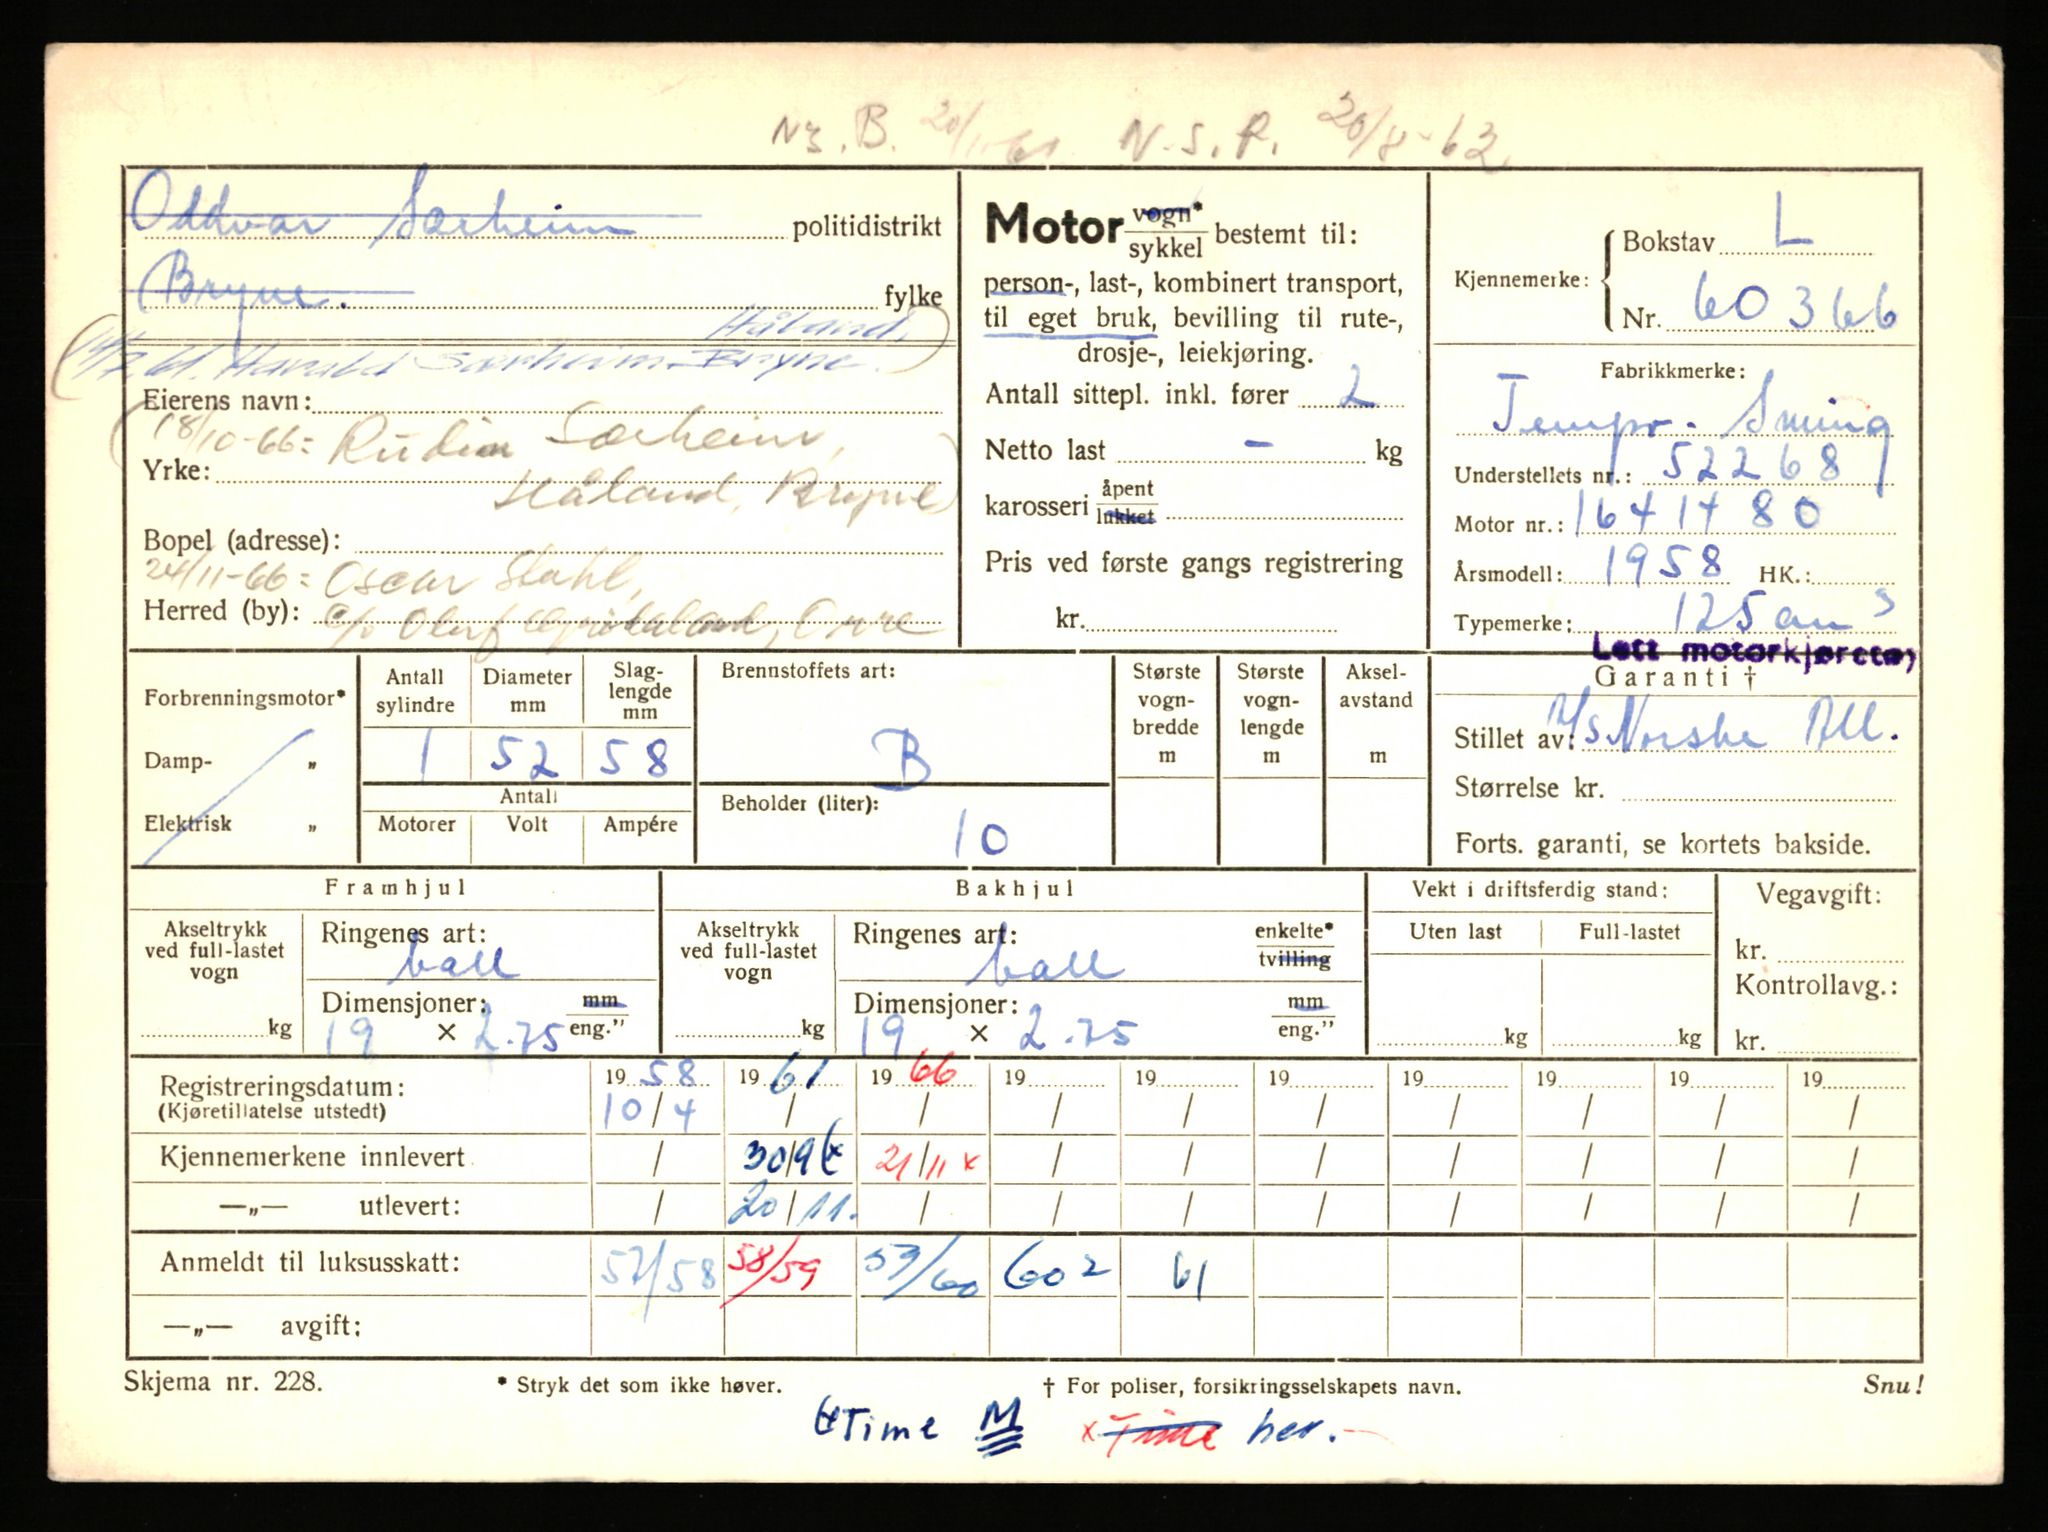 N3. B. 20/11-61 N.S.R. 20/8-63.
Oddvar Særheim politidistrikt
Bryne. fylke
Håland,
61. Harald Særheim Bryne.
Eierens navn:
18/10-66: Rudin Særheim,
Yrke:
Håland, Bryne
Bopel (adresse):
24/11-66: Oscar Stahl,
Herred (by): c/o Oluf Orre
Motor vogn* sykkel bestemt til:
person-, last-, kombinert transport,
til eget bruk, bevilling til rute-,
drosje-, leiekjøring.
Antall sittepl. inkl. fører 2
Netto last - kg
karosseri åpent lukket
Pris ved første gangs registrering
kr.
Kjennemerke: Bokstav L
Nr. 60366
Fabrikkmerke:
Tempo - Swing
Understellets nr.: 52268
Motor nr.: 1641480
Årsmodell: 1958 HK.:
Typemerke: 125 cm3
Lett motorkjøretøy
Garanti †
Stillet av: A/S Norske All.
Størrelse kr.
Forts. garanti, se kortets bakside.
Forbrenningsmotor*
Damp- „
Elektrisk „
Antall sylindre Diameter mm Slag-lengde mm
1 52 58
Antall
Motorer Volt Ampére
Brennstoffets art:
B
Beholder (liter):
10
Største vogn-bredde m Største vogn-lengde m Aksel-avstand m
Framhjul
Akseltrykk ved full-lastet vogn
kg
Ringenes art:
ball
Dimensjoner: mm eng."
19 × 2.75
Bakhjul
Akseltrykk ved full-lastet vogn
kg
Ringenes art: enkelte* tvilling
ball
Dimensjoner: mm eng."
19 × 2.75
Vekt i driftsferdig stand:
Uten last Full-lastet
kg kg
Vegavgift:
kr.
Kontrollavg.:
kr.
Registreringsdatum: 1958 1961 1966 19 19 19 19 19 19 19
(Kjøretillatelse utstedt) 10/4 / / / / / / / / /
Kjennemerkene innlevert / 30/9 x 21/11 x / / / / / / /
—„— utlevert: / 20/11. / / / / / / / /
Anmeldt til luksusskatt: 57/58 58/59 59/60 602 61
—„— avgift:
Skjema nr. 228. * Stryk det som ikke høver. † For poliser, forsikringsselskapets navn. Snu!
Time M x Time her.